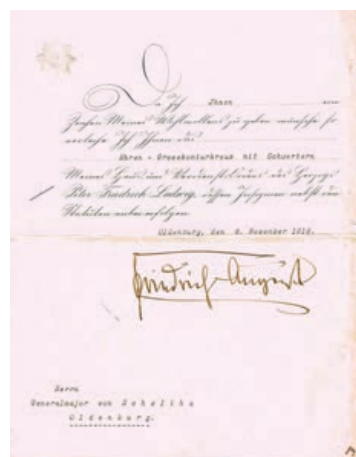 Da Ich Ihnen ein
Zeichen Meines Wohlwollens zu geben wünsche so
verleihe Ich Ihnen das
Ehren - Grosskomturkreuz mit Schwertern
Meines Haus und Verdienst Ordens des Herzogs
Peter Friedrich Ludwig, dessen Insignien nebst den
Statuten anbei erfolgen.
Oldenburg, den 6. November 1918.
Friedrich August
Herrn
Generalmajor von Scheliha
Oldenburg.